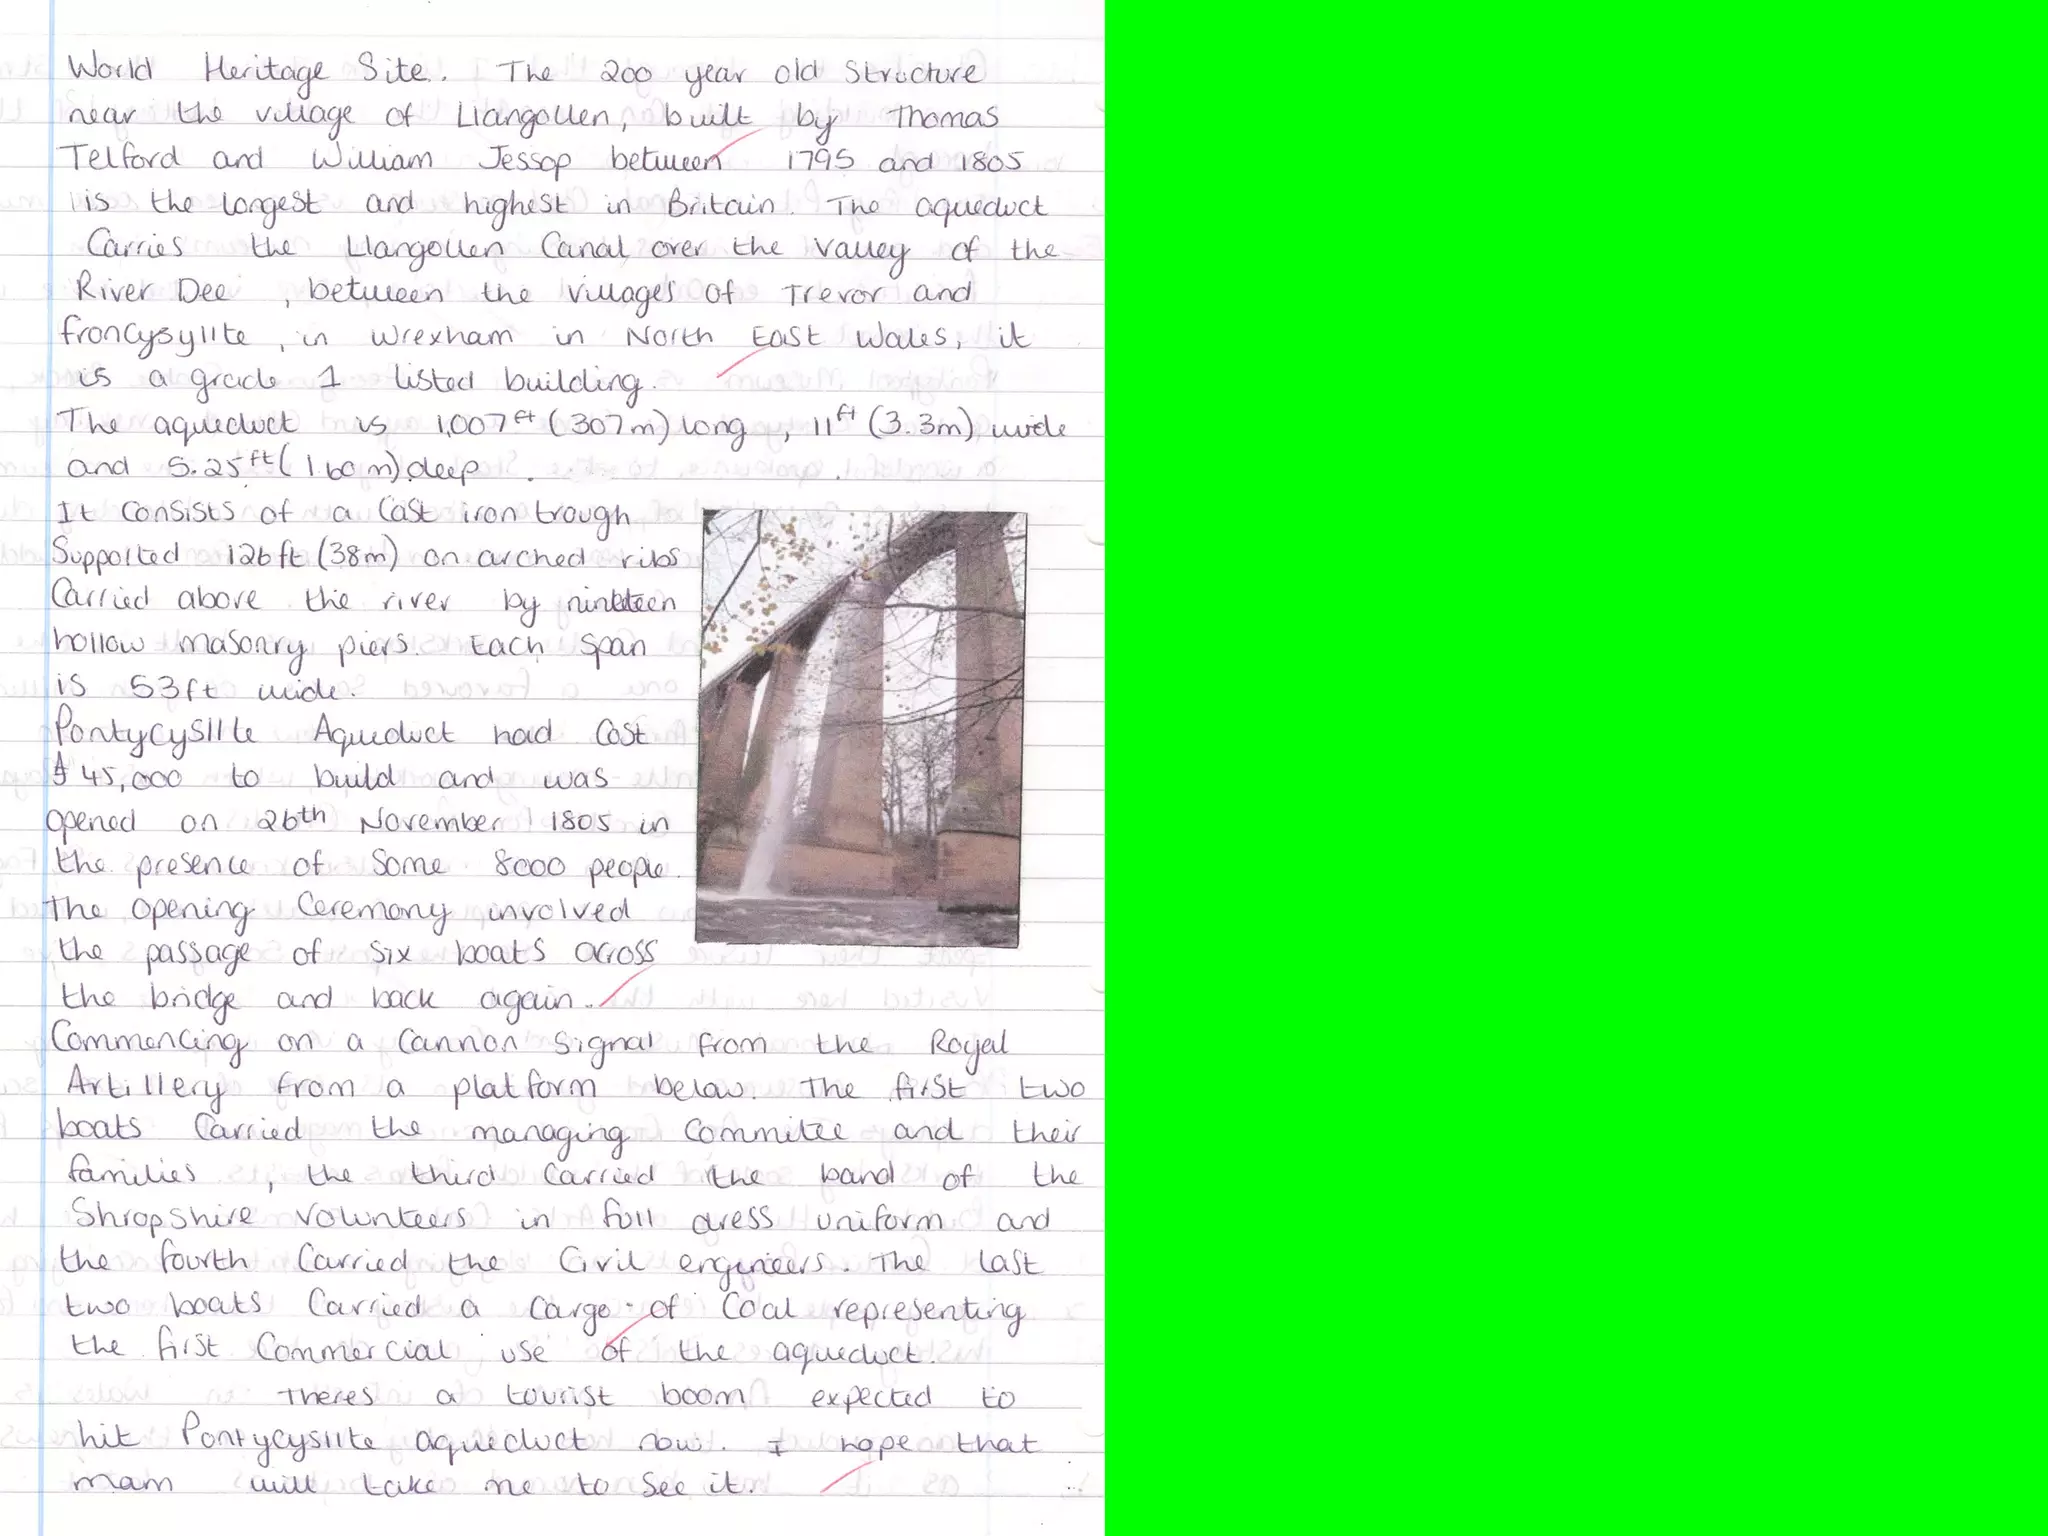 World Heritage Site. The 200 year old Structure
near the village of Llangollen, built by Thomas
Telford and William Jessop between 1795 and 1805
is the longest and highest in Britain. The aqueduct
Carries the Llangollen Canal over the valley of the
River Dee , between the villages of Trevor and
froncysyllte , in Wrexham in North East Wales, it
is a grade 1 listed building.
The aqueduct is 1,007ft (307m) long , 11ft (3.3m) wide
and 5.25ft (1.60m) deep .
It Consists of a Cast iron trough
Supported 126ft (38m) on arched ribs
Carried above the river by nineteen
hollow masonry piers. Each Span
is 53ft wide.
Pontycysllte Aqueduct had Cost
£45,000 to build and was
opened on 26th November 1805 in
the presence of Some 8000 people.
The opening Ceremony involved
the passage of Six boats across
the bridge and back again.
Commencing on a Cannon Signal from the Royal
Artillery from a platform below. The first two
boats Carried the managing Commitee and their
families , the third Carried the band of the
Shropshire Volunteers in full dress uniform and
the fourth Carried the Civil engineers. The last
two boats Carried a Cargo of Coal representing
the first Commercial use of the aqueduct.
Theres a tourist boom expected to
hit Pontycysllte aqueduct now. I hope that
mam will take me to See it.